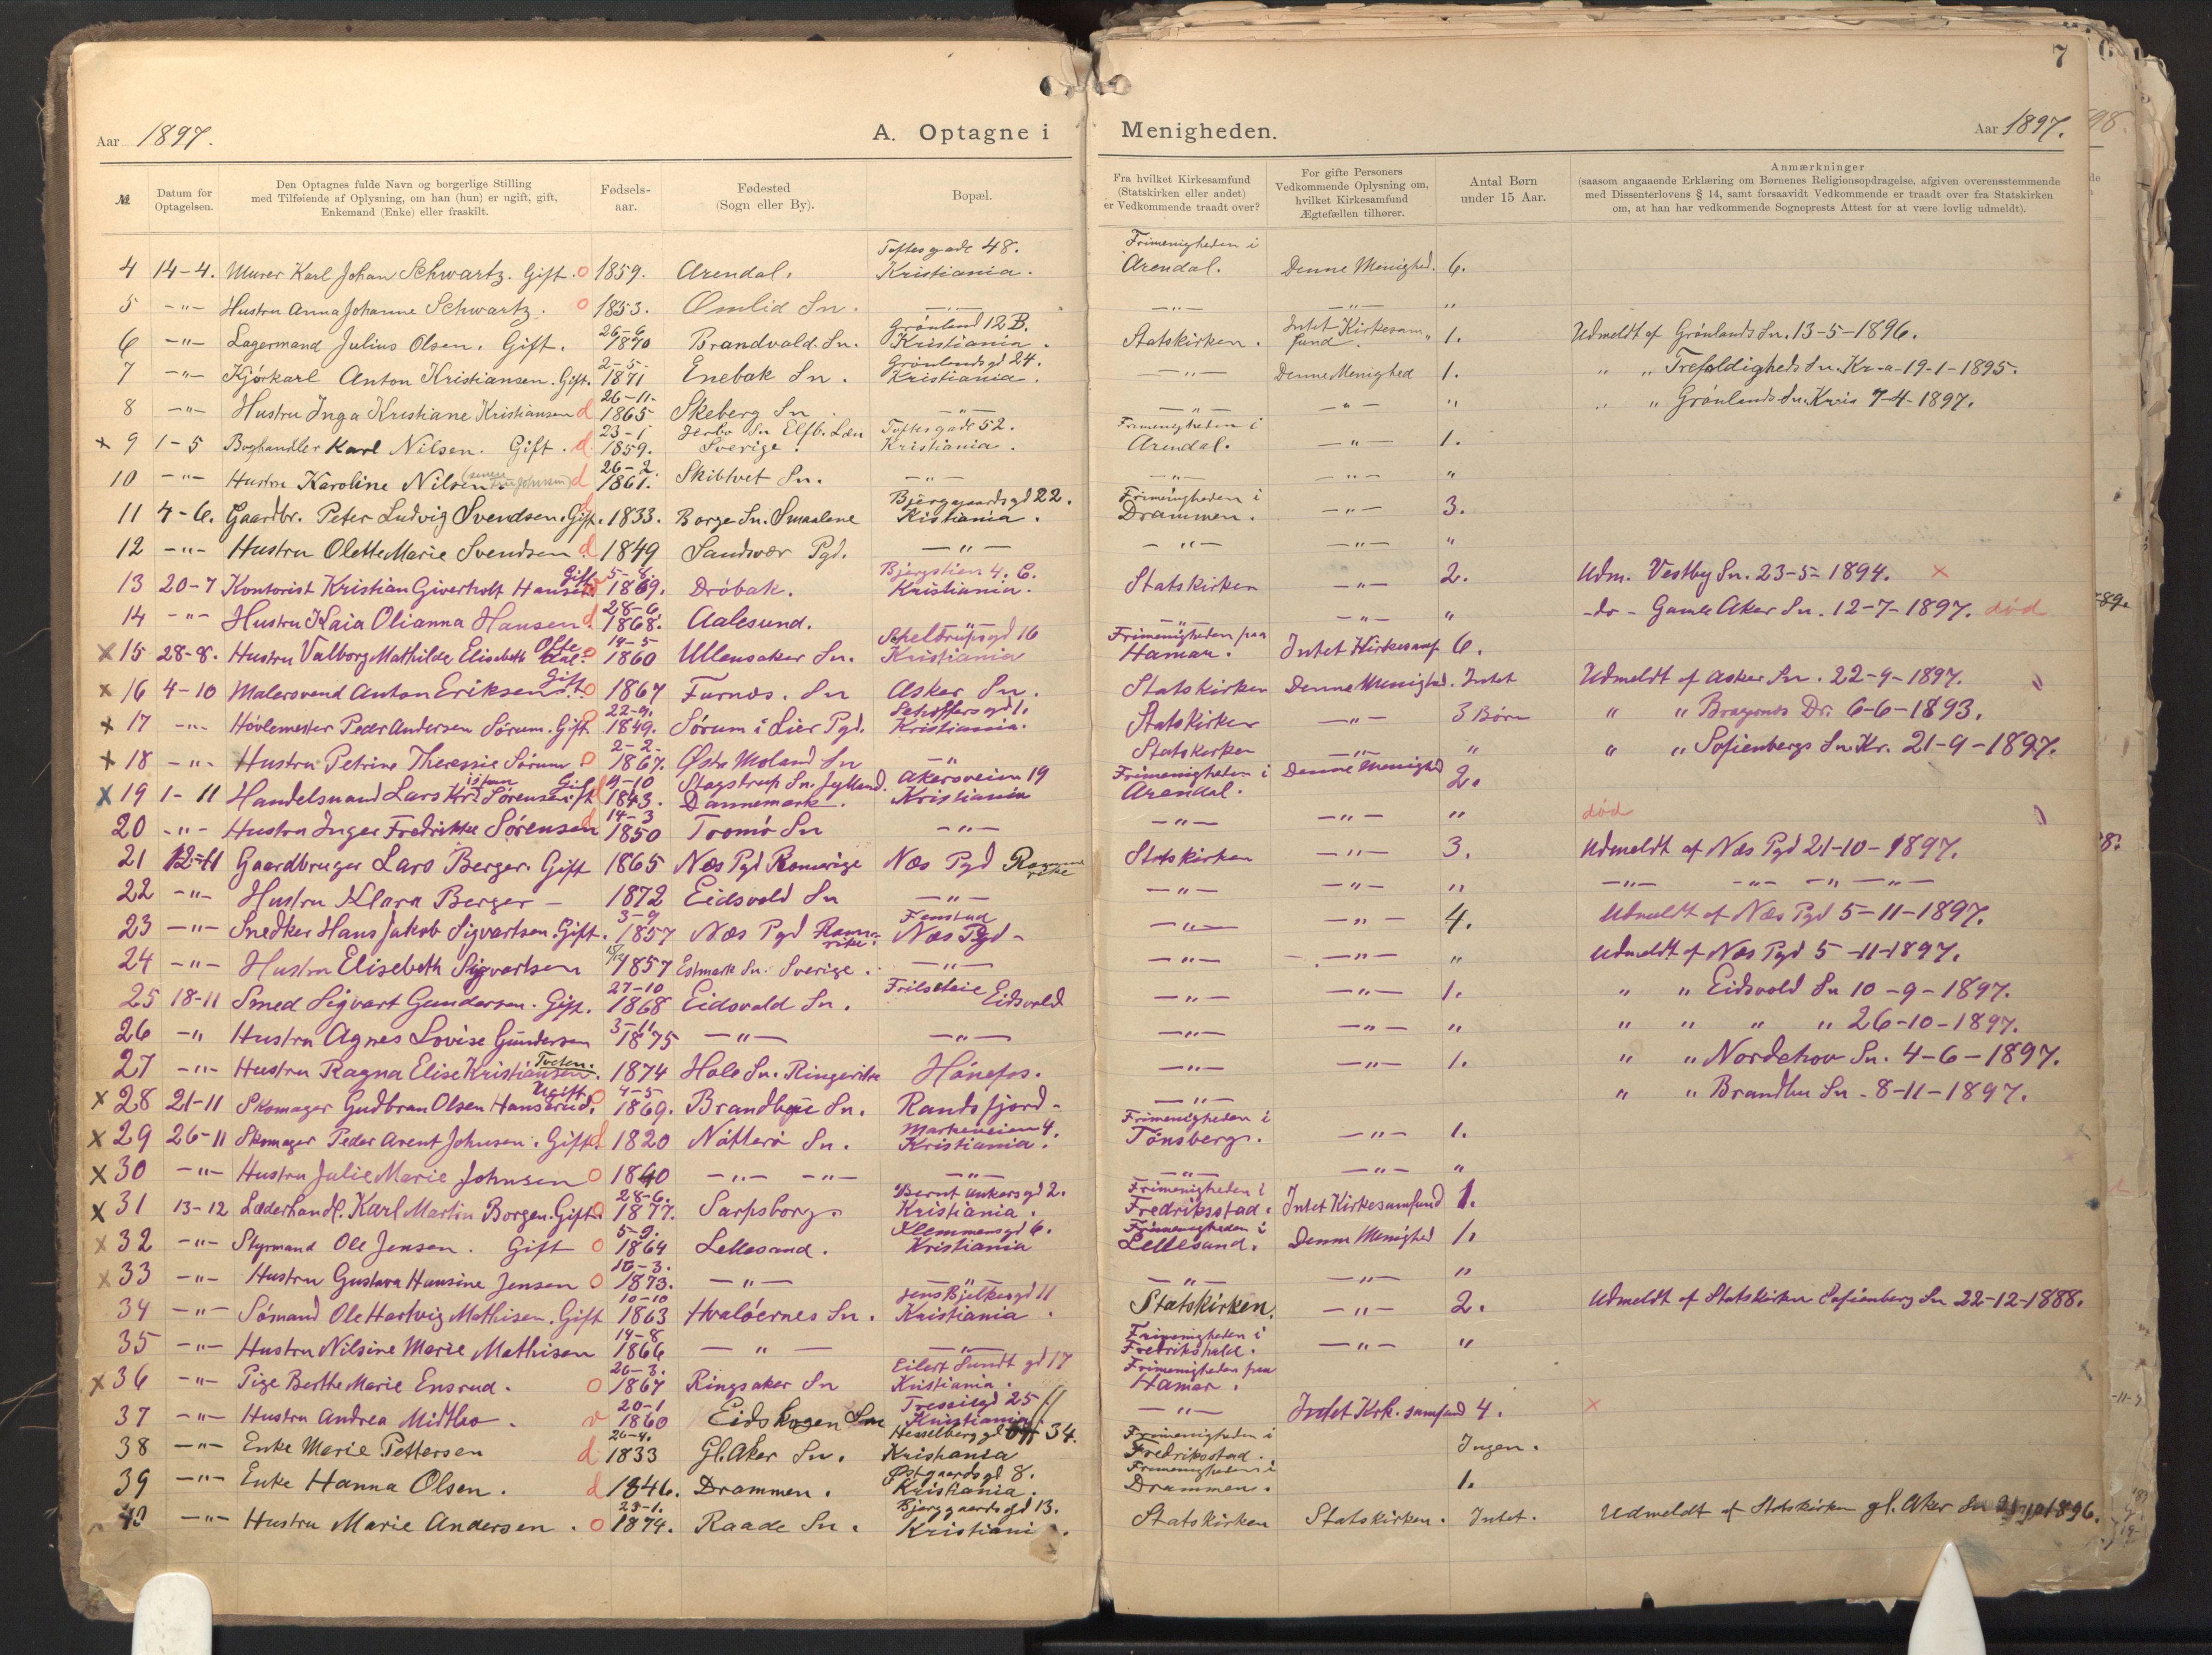 7
Aar 1897. A. Optagne i Menigheden. Aar 1897.
№
Datum for Optagelsen.
Den Optagnes fulde Navn og borgerlige Stilling
med Tilføiende af Oplysning, om han (hun) er ugift, gift,
Enkemand (Enke) eller fraskilt.
Fødsels-
aar.
Fødested
(Sogn eller By).
Bopæl.
Fra hvilket Kirkesamfund
(Statskirken eller andet)
er Vedkommende traadt over?
For gifte Personers
Vedkommende Oplysning om,
hvilket Kirkesamfund
Ægtefællen tilhører.
Antal Børn
under 15 Aar.
Anmærkninger
(saasom angaaende Erklæring om Børnenes Religionsopdragelse, afgiven overensstemmende
med Dissenterlovens § 14, samt forsaavidt Vedkommende er traadt over fra Statskirken
om, at han har vedkommende Sogneprests Attest for at være lovlig udmeldt).
4 14-4. Murer Karl Johan Schwartz. Gift. o 1859. Arendal. Toftesgade 48. Kristiania. Frimenigheden i Arendal. Denne Menighed. 6.
5 -"- Hustru Anna Johanne Schwartz. o 1853. Omlid Sn. -"- -"- -"- "
6 -"- Lagermand Julius Olsen. Gift. 26-6 1870 Brandvald. Sn. Grönland 12 B. Kristiania. Statskirken. Intet Kirkesamfund. 1. Udmeldt af Grönlands Sn. 13-5-1896.
7 -"- Kjørkarl Anton Kristiansen. Gift. 2-5- 1871 Enebak Sn. Grönlandsgd 24. Kristiania. -"- Denne Menighed 1. " " Trefoldigheds Sn. Kr.a 19-1-1895.
8 -"- Hustru Inga Kristiane Kristiansen d 26-11- 1865 Skeberg Sn. -"- -"- -"- " " " Grönlands Sn. Kria 7-4-1897.
x 9 1-5 Boghandler Karl Nilsen. Gift. d. 23-1 1859. Sn Elfb. Læn Sverige. Toftesgade 52. Kristiania. Frimenigheden i Arendal. -"- 1.
10 -"- Hustru Karoline Nilsen d 26-2. 1861. Skibtvet Sn. -"- -"- -"- "
11 4-6. Gaardbr. Peter Ludvig Svendsen. Gift. 1833. Borge Sn. Smaalene Bjerggaardsgd 22. Kistiania. Frimenigheden i Drammen. -"- 3.
12 -"- Hustru Olette Marie Svendsen. d 1849 Sandsvær Pgd. -"- -"- -"- "
13 20-7 Kontorist Kristian Giverholt Hansen Gift 5-8. 1869. Dröbak. Bjergstien 4. E. Kristiania. Statskirken -"- 2. Udm. Vestby Sn. 23-5-1894. x
14 -"- Hustru Kaia Olianna Hansen. d 28-6. 1868. Aalesund. -"- -"- " -do- Gamle Aker Sn. 12-7-1897. död
x 15 28-8. Hustru Valborg Mathilde Elisabeth o 14-5 1860 Ullensaker Sn. Scheltrupsgd 16 Kristiania Frimenigheden paa Hamar. Intet Kirkesamf 6.
x 16 4-10 Malersvend Anton Eriksen Gift. o 1867 Furnes. Sn Asker Sn. Statskirken Denne Menighed. Intet Udmeldt af Asker Sn. 22-9-1897.
x 17 -"- Hövlemester Peder Andersen Sørum. Gift 22-9. 1849. Sörum i Lier Pgd. Schøffersgd 1. Kristiania. Statskirken -"- 3 Börn " " Bragernes Dr. 6-6-1893.
x 18 -"- Hustru Petrine Theressie Sørum o 2-2- 1867. Östre Moland Sn -"- Statskirken -"- " " " Sofienbergs Sn Kr. 21-9-1897.
x 19 1-11 Handelsmand Lars Kristian Sørensen. Gift d 9-10 1843. Stagstrup Sn. Jylland. Dannemark. Akersveien 19 Kristiania Frimenigheden i Arendal. Denne Menighed 2.
20 -"- Hustru Inger Fredrikke Sørensen d 14-3 1850 Tromö Sn -"- -"- -"- " död
21 12-11 Gaardbruger Lars Berger. Gift 1865 Nes Pgd Romerige Nes Pgd Romerike Statskirken -"- 3. Udmeldt af Nes Pgd 21-10-1897.
22 -"- Hustru Klara Berger - 1872 Eidsvold Sn -"- -"- -"- " -"- -"- -"- -"-
23 -"- Snedker Hans Jakob Sigvartsen. Gift. 3-9 1857 Nes Pgd Romerike. Fenstad Nes Pgd- -"- -"- 4. Udmeldt af Nes Pgd 5-11-1897.
24 -"- Hustru Elisebeth Sigvartsen 1857 Estmark Sn. Sverige. -"- -"- -"- " Udmeldt af Nes Pgd 5-11-1897.
25 18-11 Smed Sigvart Gundersen. Gift. 27-10 1868 Eidsvold Sn. Eidsvold -"- -"- 1. " " Eidsvold Sn 10-9-1897.
26 -"- Hustru Agnes Lovise Gundersen 3-11 1875 -"- -"- -"- -"- " " " " " 26-10-1897.
27 -"- Hustru Ragna Elise Kristiansen. 1874 Hole Sn. Ringerike Hönefos. -"- -"- 1. " " Nordehov Sn. 4-6-1897.
x 28 21-11 Skomager Gudbran Olsen Hansrud. Ugift o 4-5 1869. Brandbu Sn. Randsfjord- -"- " " Brandbu Sn. 8-11-1897.
x 29 26-11 Skomager Peder Arent Johnsen. Gift. d 1820 Nötterö Sn. Markeveien 4. Kristiania. Frimenigheden i Tönsberg. -"- 1.
x 30 -"- Hustru Julie Marie Johnsen o 1840 -"- -"- -"- -"- -"- "
x 31 13-12 Læderhandl. Karl Martin Borgen. Gift 28-6. 1877. Sarpsborg. Bernt Ankersgd 2. Kristiania. Frimenigheden i Fredriksstad. Intet Kirkesamfund 1.
x 32 -"- Styrmand Ole Jensen. Gift o 5-9. 1864 Lellesand. Klemmensgd 6. Kristiania Frimenigheden i Lellesand. Denne Menighed 1.
x 33 -"- Hustru Gustava Hansine Jensen o 1873. -"- -"- -"- -"- "
34 -"- Sømand Ole Hartvig Mathisen. Gift 10-10 1863 Hvalöernes Sn. Jens Bjelkesgd 11 Kristiania. Statskirken. -"- 2. Udmeldt af Statskirken Sofienberg Sn 22-12-1888.
35 -"- Hustru Nilsine Marie Mathisen 14-8 1866 -"- -"- Frimenigheden i Fredrikshald. -"- "
x 36 -"- Pige Berthe Marie Ensrud. o 26-3. 1867 Ringsaker Sn Eilert Sundt gd 17 Kristiania. Frimenigheden paa Hamar.
37 -"- Hustru Andrea Midtbo. v 20-1 1860 Eidskogen Sn 25 Kristiania. -"- Intet Kirk. samfund 4. x
38 -"- Enke Marie Pettersen d 26-4. 1833 Gl. Aker Sn. Hesselberg gd 34. Kristiania Frimenigheden i Fredriksstad. Ingen.
39 -"- Enke Hanna Olsen. d 1846. Drammen. Østgaardsgd 8. Kristiania. Frimenigheden i Drammen. 1.
40 -"- Hustru Marie Andersen. o 23-1. 1874. Raade Sn. Bjerggaardsgd 13. Kristiania. Statskirken Statskirken. Intet. Udmeldt af Statskirken gl. Aker Sn 1896.